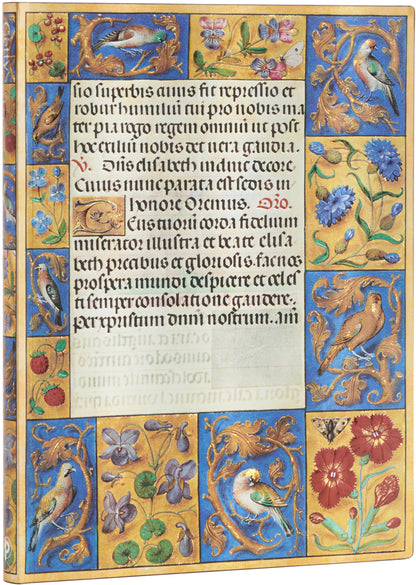 sio superbis cuius fit repressio et
robur humiliū tu pro nobis ma
ter pia rogo regem omniū ut post
hoc exiliū nobis det vera gaudia.
V. Dn̄s elisabeth induit decore.
Cuius nunc parata est sedis in
honore Oremus. Oro.
Tuorū corda fidelium
miserator illustra et beate elisa
beth precibus et gloriosis fac nos
prospera mundi despicere et celes
ti semper consolatione gaudere.
Per xpristum dnm̄ nostrum. am̄